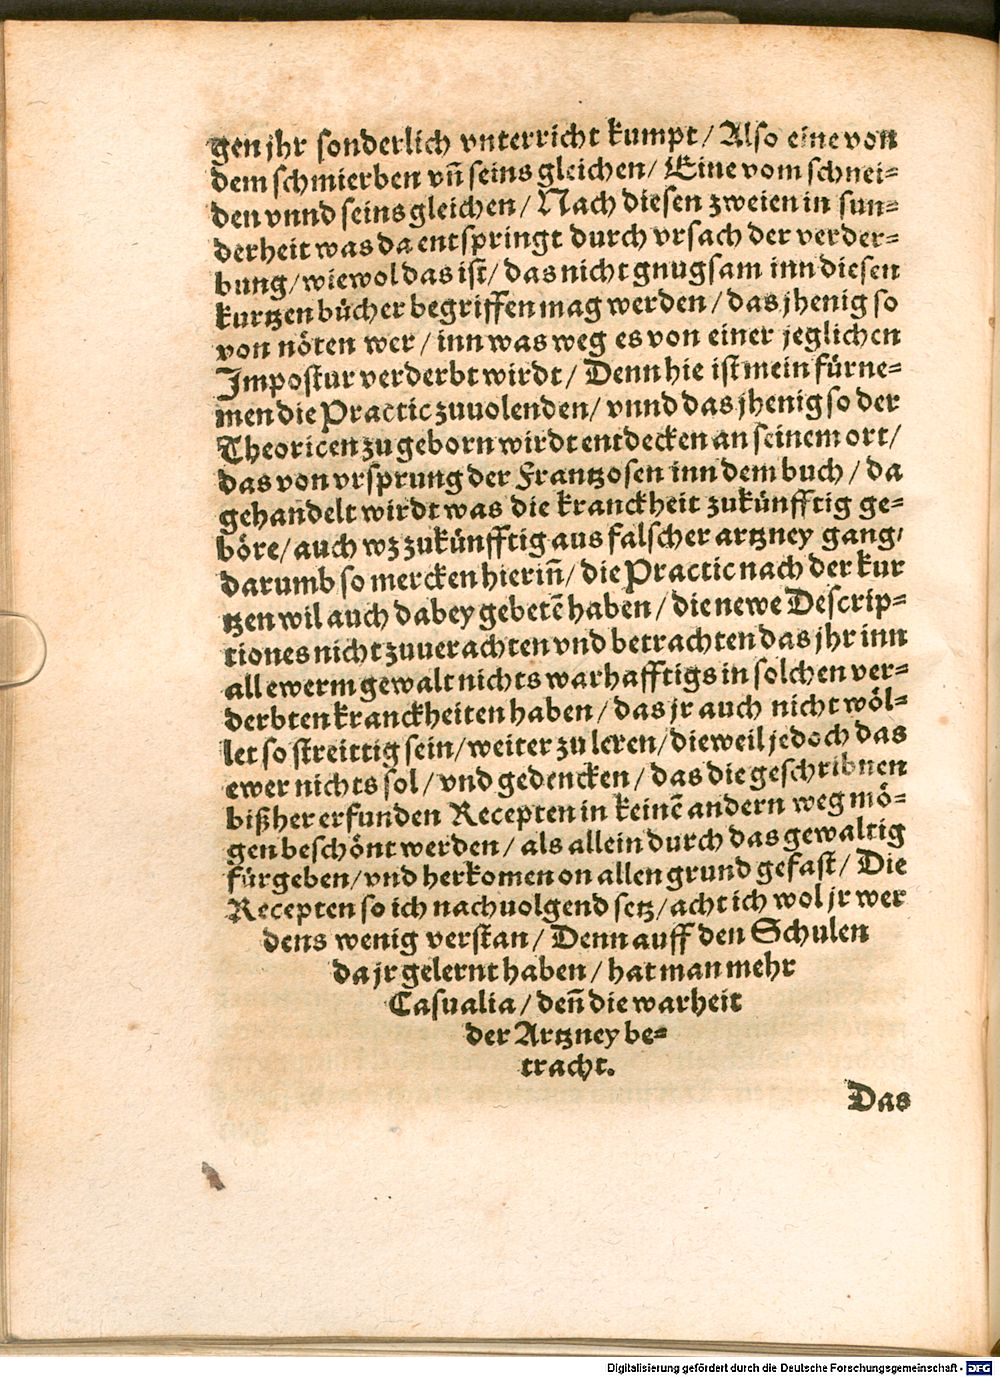 gen jhr sonderlich vnterricht kumpt / Also eine von
dem schmierben vñ seins gleichen / Eine vom schnei⸗
den vnnd seins gleichen / Nach diesen zweien in sun⸗
derheit was da entspringt durch vrsach der verder⸗
bung / wiewol das ist / das nicht gnugsam inn diesen
kurtzen bücher begriffen mag werden / das jhenig so
von nöten wer / inn was weg es von einer jeglichen
Impostur verderbt wirdt / Denn hie ist mein fürne⸗
men die Practic zuuolenden / vnnd das jhenig so der
Theoricen zu geborn wirdt entdecken an seinem ort /
das von vrsprung der Frantzosen inn dem buch / da
gehandelt wirdt was die kranckheit zukünfftig ge⸗
böre / auch wz zukünfftig aus falscher artzney gang /
darumb so mercken hieriñ / die Practic nach der kur
tzen wil auch dabey gebetē haben / die newe Descrip⸗
tiones nicht zuuerachten vnd betrachten das jhr inn
all ewerm gewalt nichts warhafftigs in solchen ver⸗
derbten kranckheiten haben / das jr auch nicht wöl⸗
let so streittig sein / weiter zu leren / dieweil jedoch das
ewer nichts sol / vnd gedencken / das die geschribnen
bißher erfunden Recepten in keinē andern weg mö⸗
gen beschönt werden / als allein durch das gewaltig
fürgeben / vnd herkomen on allen grund gefast / Die
Recepten so ich nachuolgend setz / acht ich wol jr wer
dens wenig verstan / Denn auff den Schulen
da jr gelernt haben / hat man mehr
Casualia / deñ die warheit
der Artzney be⸗
tracht.
Das
Digitalisierung gefördert durch die Deutsche Forschungsgemeinschaft - DFG